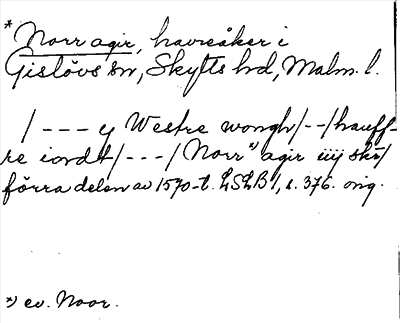 * Norr agir, havreåker i
Gislövs sn, Skytts hd, Malm. l.
/ - - - y Westre wongh/- -/hauff-
re iordt/- - -/ Norr *) agir iiij skr/
förra delen av 1570-t. LSLB 1, s. 376. orig.
*) ev. Noor.